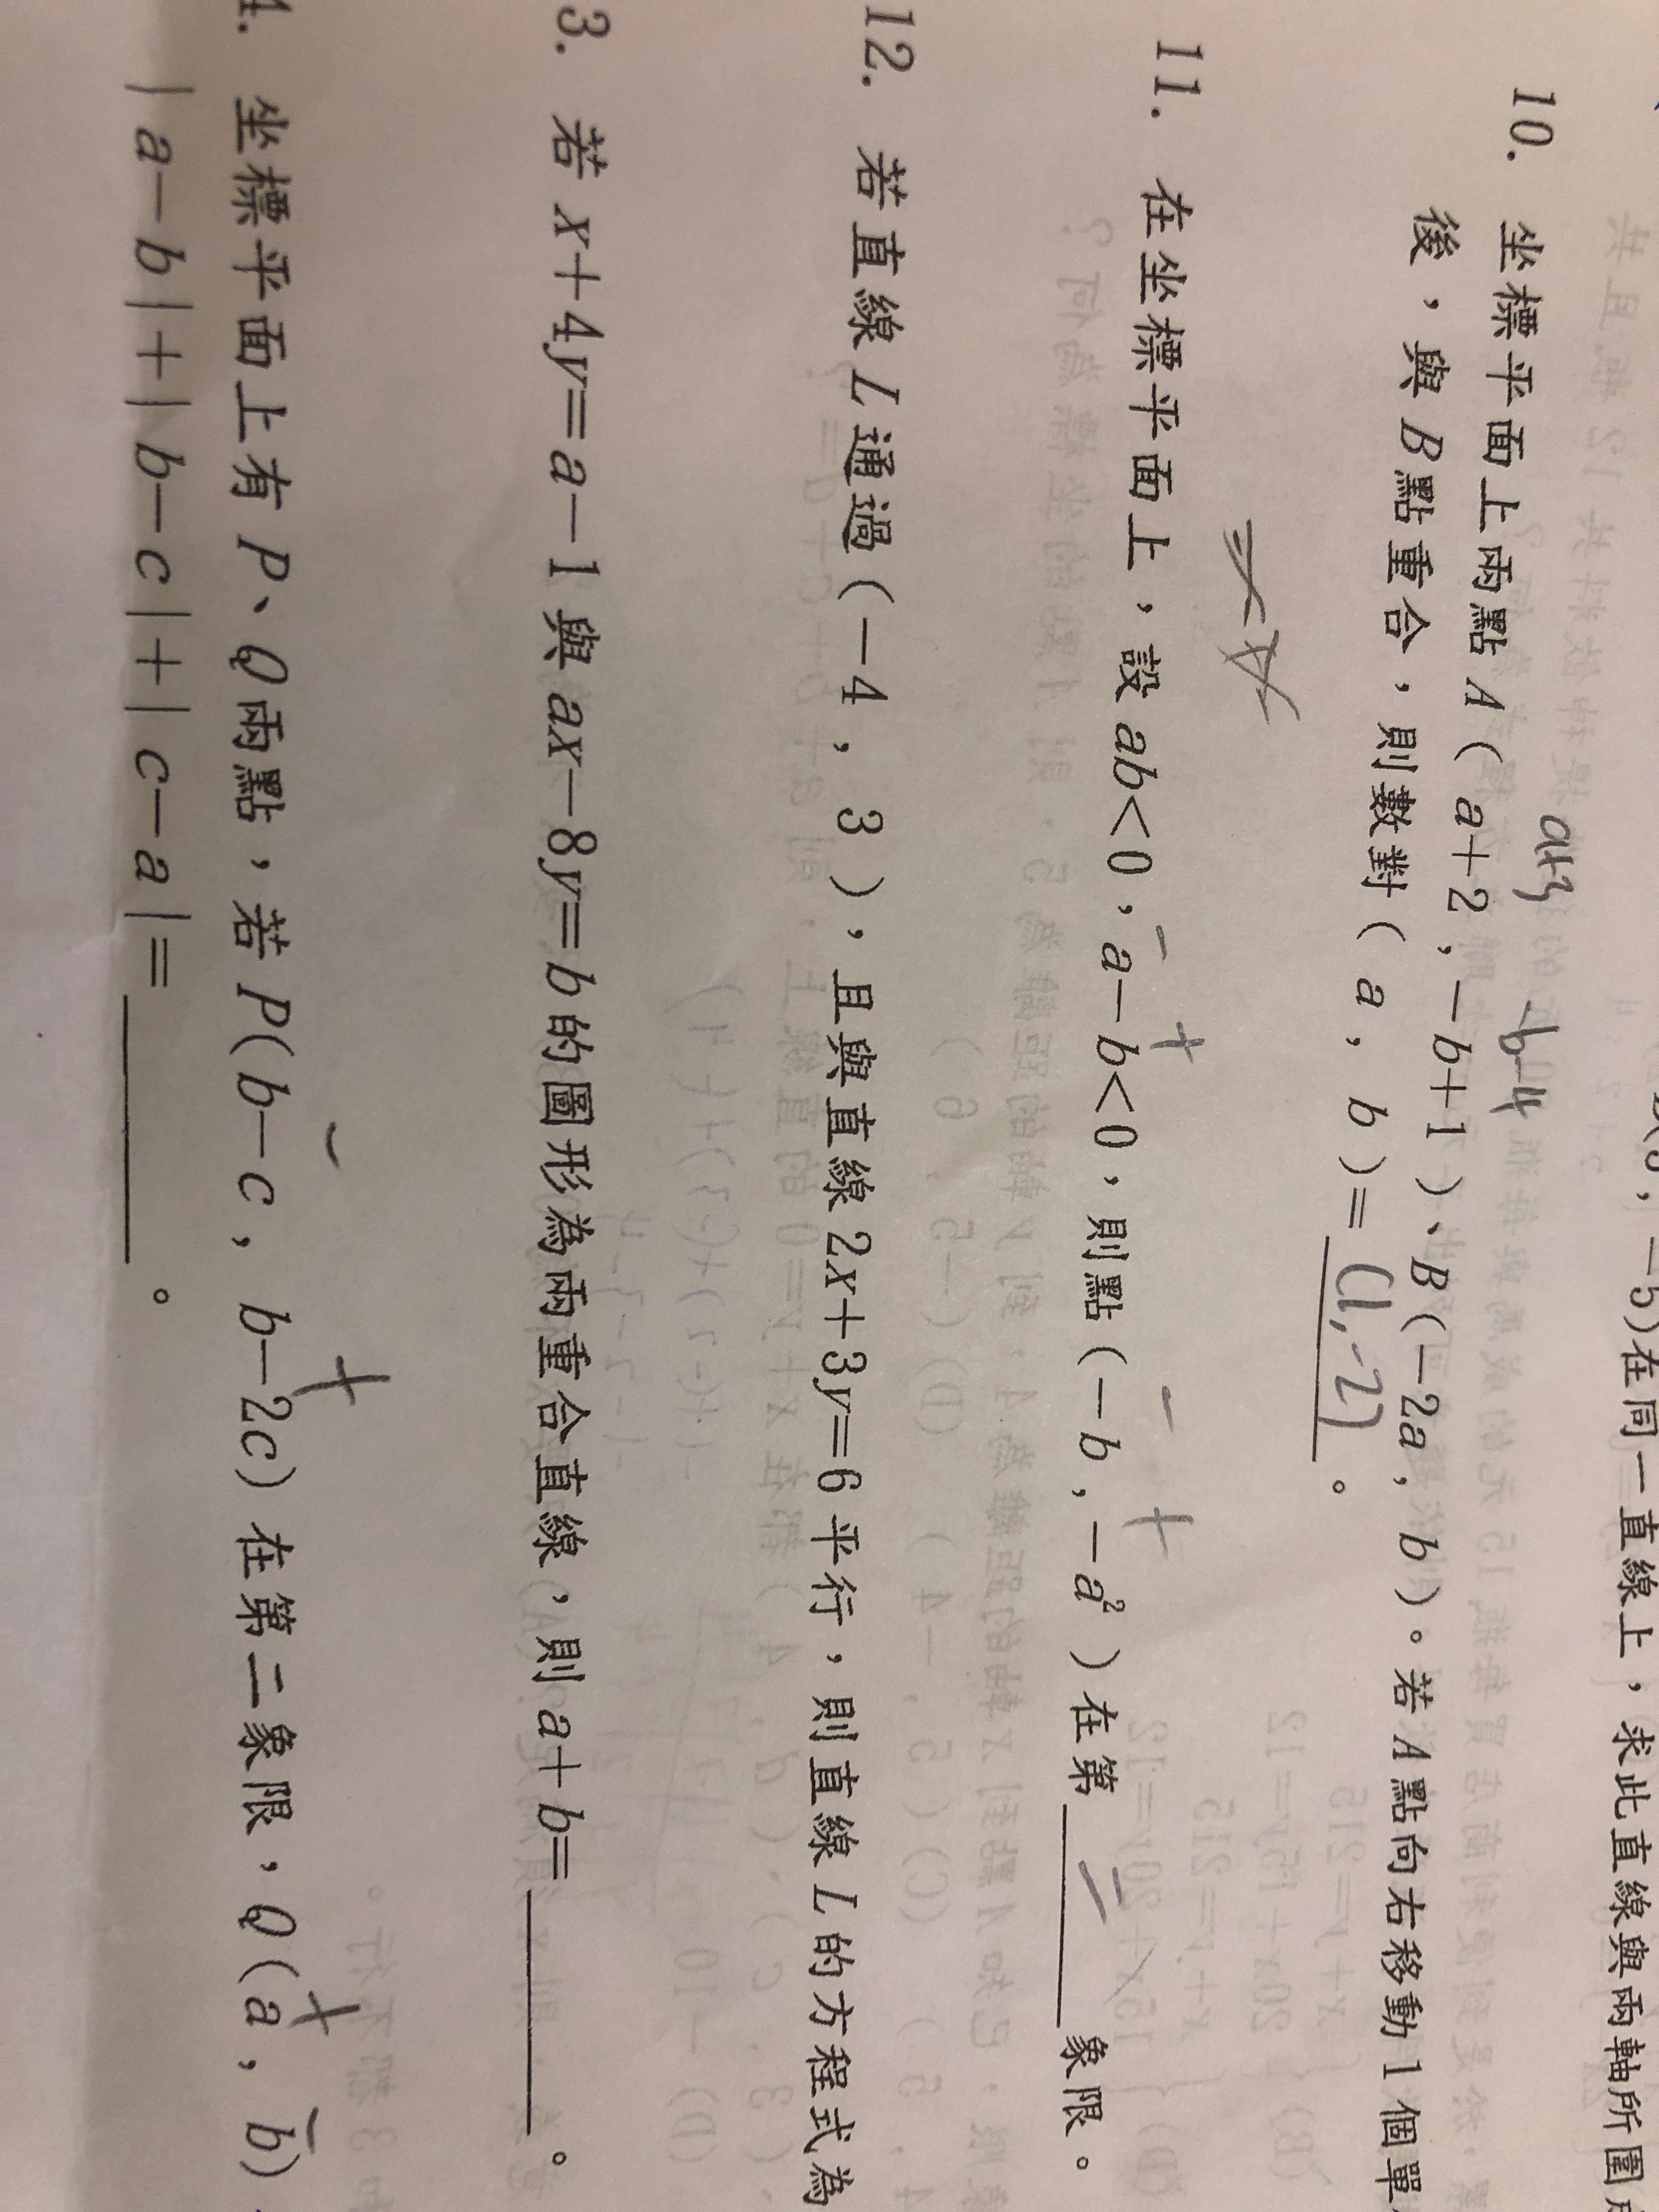 ，－5)在同一直線上，求此直線與兩軸所圍
a+3 －b－4
10. 坐標平面上兩點A（a＋2，－b＋1）、B(－2a，b)。若A點向右移動1個單
後，與B點重合，則數對（a，b）＝(1,-2)。
11. 在坐標平面上，設ab＜0，a－b＜0，則點（－b，－a²）在第二象限。
－ ＋ － ＋
12. 若直線L通過（－4，3），且與直線2x＋3y＝6平行，則直線L的方程式為
3. 若x＋4y＝a－1與ax－8y＝b的圖形為兩重合直線，則a＋b＝。
－ ＋ ＋ －
4. 坐標平面上有P、Q兩點，若P(b－c，b－2c)在第二象限，Q(a，b)
｜a－b｜＋｜b－c｜＋｜c－a｜＝。